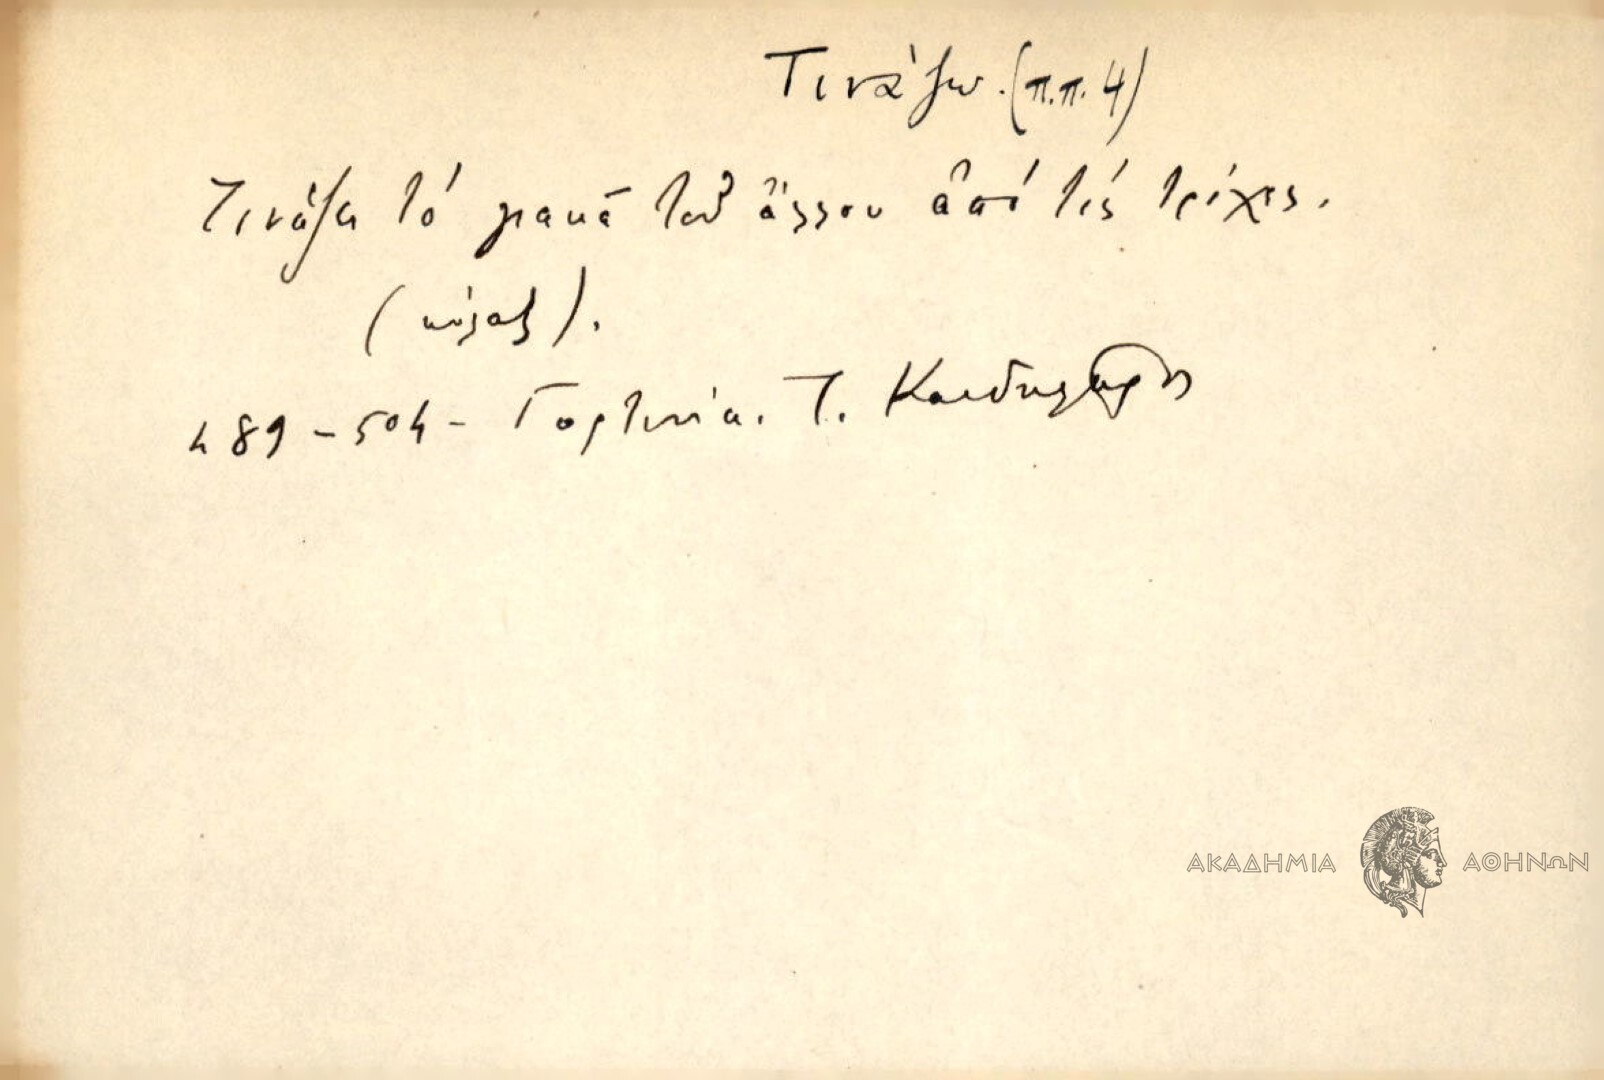 Τινάζω. (π.π. 4)
Τινάζει τό γιακά τοῦ ἄλλου ἀπό τίς τρίχες.
(κόλαξ).
489 - 504 - Γορτυνία. Τ. Κανδηλώρος
ΑΚΑΔΗΜΙΑ ΑΘΗΝΩΝ